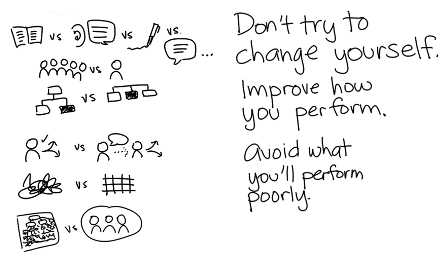 vs vs vs. ...
vs
vs
vs
vs
vs
Don't try to
change yourself.
Improve how
you perform.
Avoid what
you'll perform
poorly.